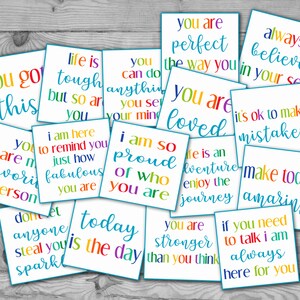 you are
perfect
the way you
always
believe
in your se
life is
tough
but so are
you
you
can do
anything
you se
your min
ou go
this
you are
loved
it's ok to make
mistake
i am here
to remind you
just how
fabulous
you are
i am so
proud
of who
you are
life is an
adventure
enjoy the
journey
you
are m
vorit
erson
make too
amazin
don't let
anyone
steal you
spark
today
is the day
you are
stronger
than you think
if you need
to talk i am
always
here for you